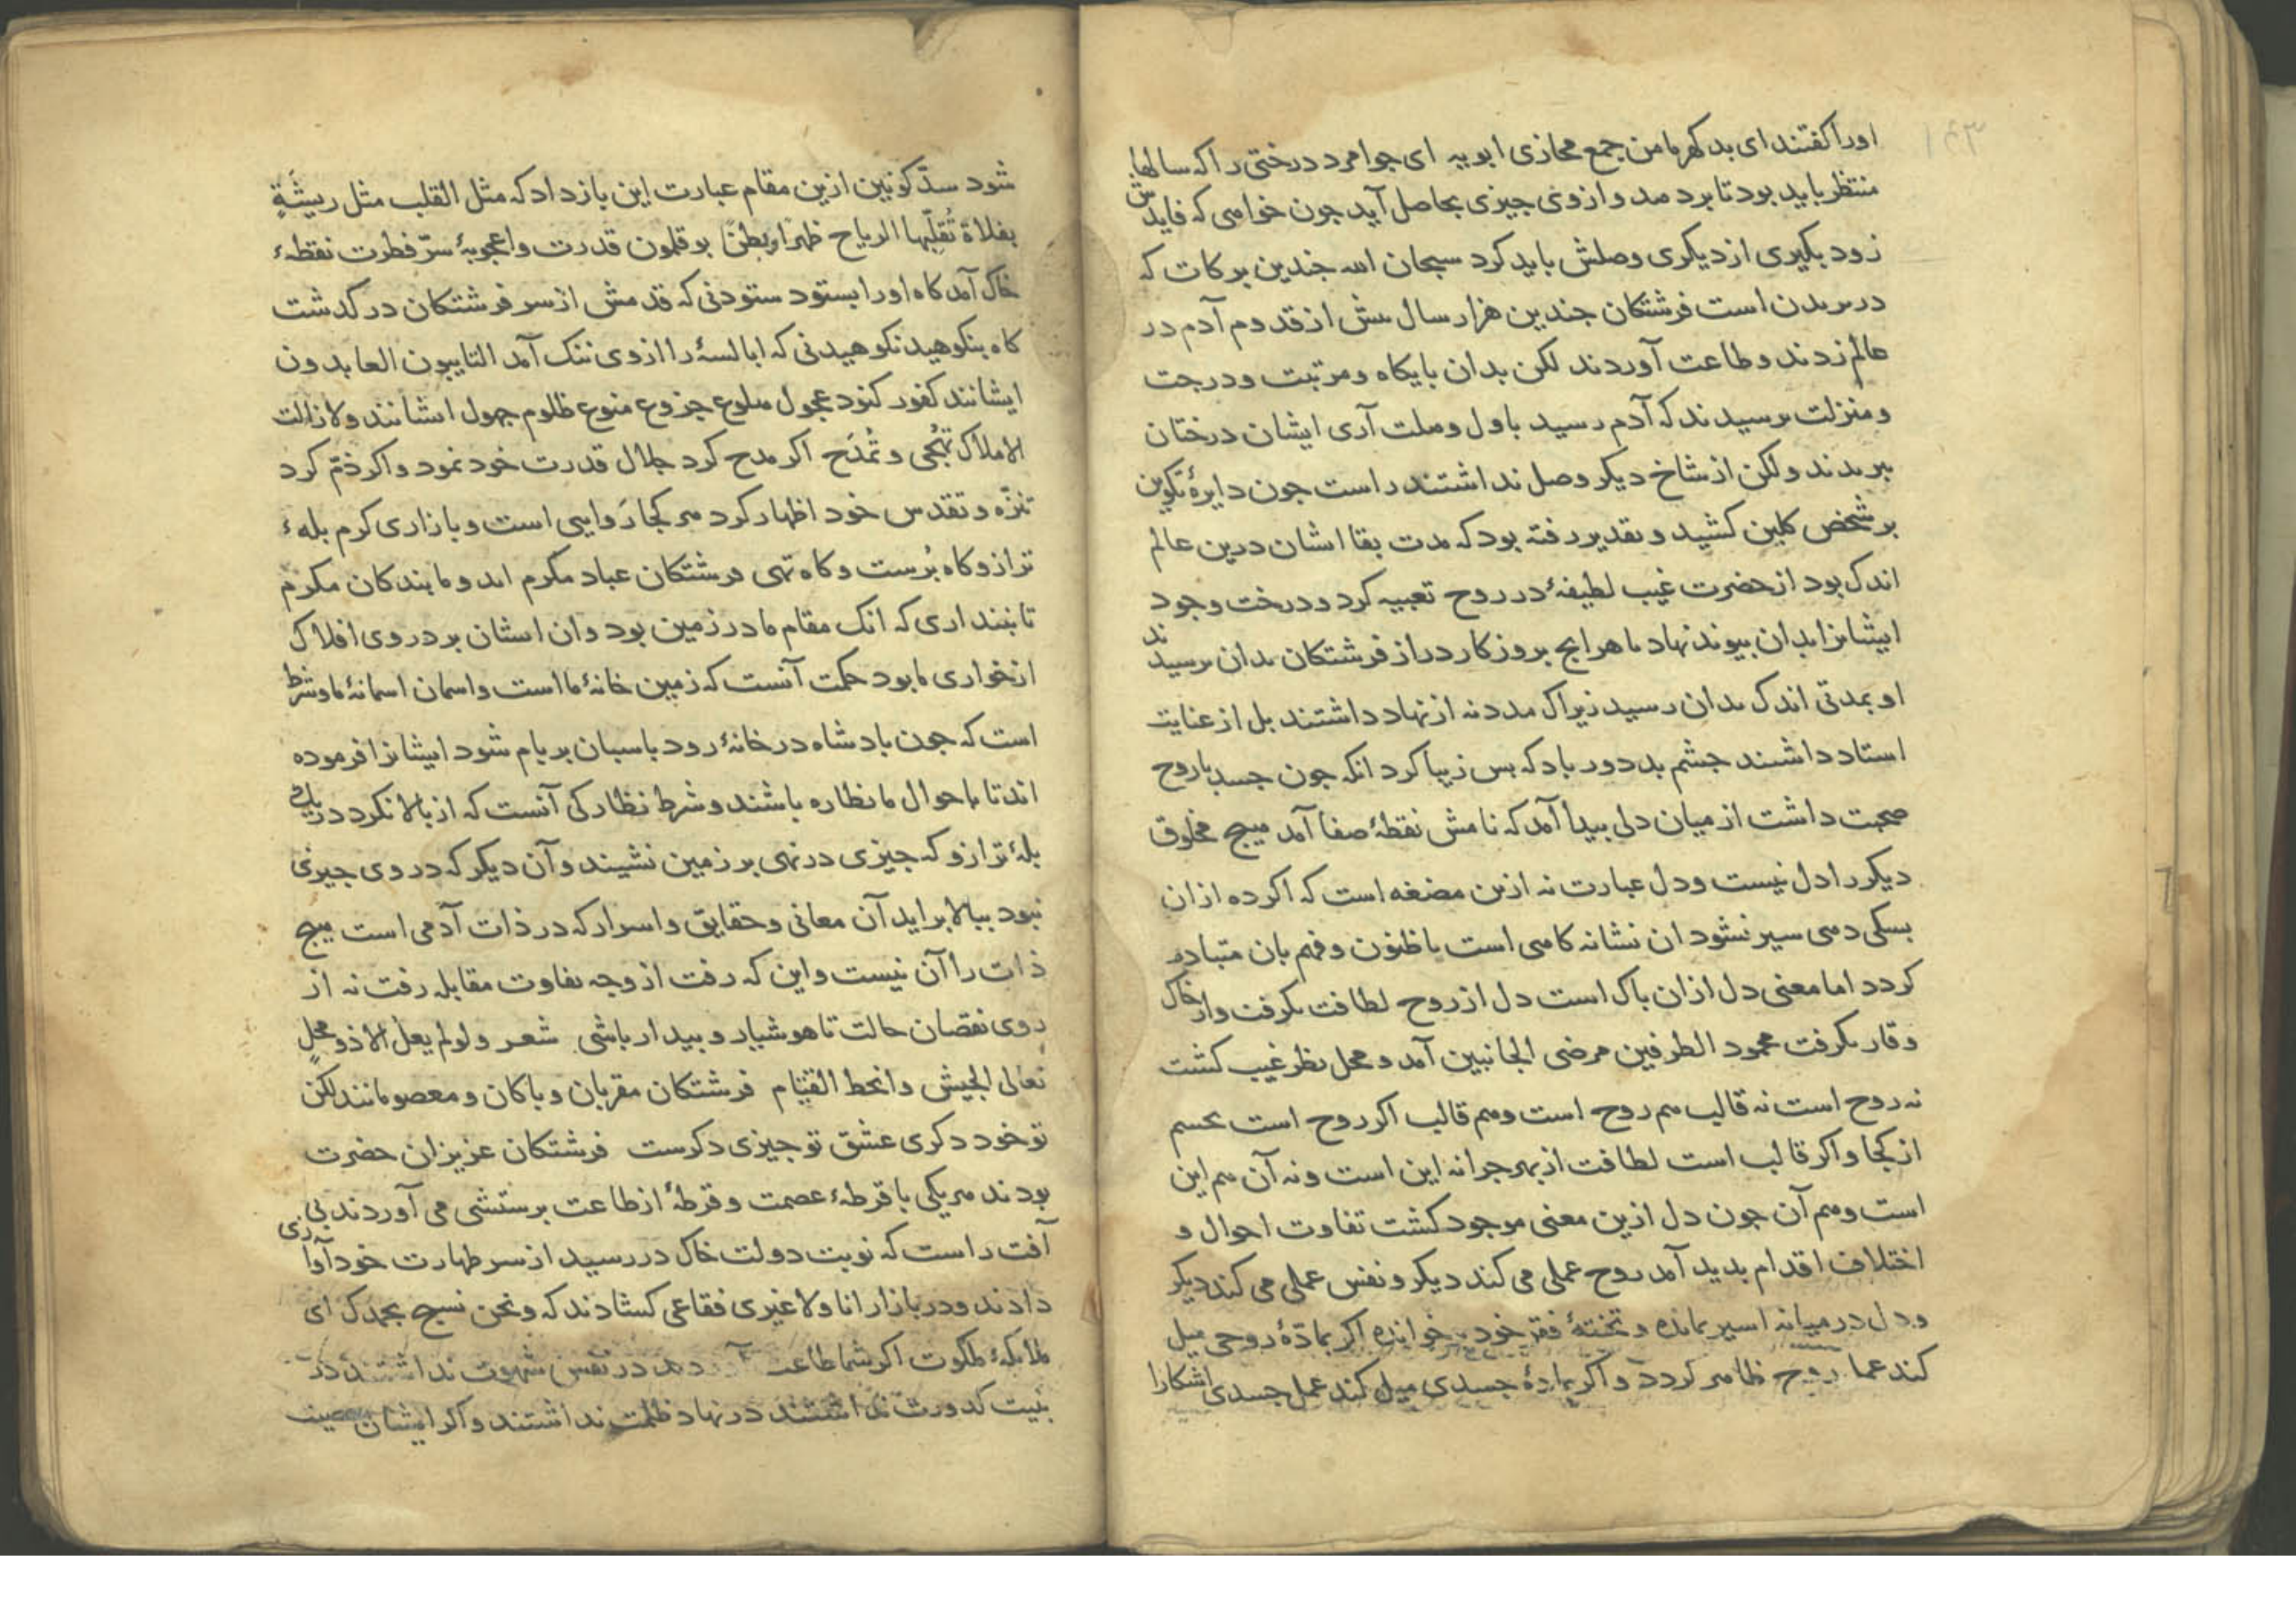 ۱۴۳
اورا کفتند ای بد کهر ما من جمع مجازی ابویه ای جوامرد درختی را که سالها
منتظر باید بود تا برد مد و از وی جیزی بحاصل آید جون خواهی که فایدش
زود بکیری از دیکری وصلش باید کرد سبحان الله جندین برکات که
در بریدن است فرشتکان جندین هزار سال بیش از قدوم آدم در
عالم زدند و طاعت آوردند لکن بدان بایکاه و مرتبت و درجت
و منزلت نرسیدند که آدم رسید باول وهلت آری ایشان درختان
ببریدند ولکن از شاخ دیکر وصل نداشتند راست جون دایرهٔ تکوین
بر شخص کلین کشید و تقدیر رفته بود که مدت بقا ایشان درین عالم
اندک بود از حضرت غیب لطیفهٔ در روح تعبیه کرد و درخت وجود
ایشانرا بدان بیوند نهاد تا هرانج بروزکار دراز فرشتکان بدان نرسیدند
او بمدتی اندک بدان رسید زیراک مدد نه از نهاد داشتند بل از عنایت
استاد داشتند جشم بد دور باد که بس زیبا کرد انکه جون جسد با روح
صحبت داشت از میان دلی بیدا آمد که نامش نقطهٔ صفا آمد هیج مخلوق
دیکر را دل نیست و دل عبارت نه ازین مضغه است که اکر ده ازان
بسکی دهی سیر نشود ان نشانه کاهی است با ظنون و فهم بان متبادر
کردد اما معنی دل ازان باک است دل از روح لطافت بکرفت و از خاک
وقار بکرفت محمود الطرفین مرضی الجانبین آمد و محل نظر غیب کشت
نه روح است نه قالب هم روح است و هم قالب اکر روح است بجسم
از کجا و اکر قالب است لطافت از بهر جرا نه این است و نه آن هم این
است و هم آن جون دل ازین معنی موجود کشت تفاوت احوال و
اختلاف اقدام بدید آمد روح عملی می کند دیکر و نفس عملی می کند دیکر
و دل در میانه اسیر بمانده و تختهٔ فقر خود بر خوانده اکر بمادّهٔ روحی میل
کند عمل روح ظاهر کردد و اکر بمادهٔ جسدی میل کند عمل جسدی اشکارا
شود سدّ کونین ازین مقام عبارت این باز داد که مثل القلب مثل ریشَةٍ
بفلاة تُقَلّبها الریاح ظهرًا و بطنًا بوقلمون قدرت و اعجوبهٔ سرّ فطرت نقطهٔ
خاک آمد کاه او را بستود ستودنی که قدمش از سر فرشتکان در کدشت
کاه بنکوهید نکوهیدنی که ابالسهٔ را از وی ننک آمد التایبون العابدون
ایشانند کفور کنود عجول هلوع جزوع منوع ظلوم جهول ایشانند ولازالت
الاملاک تُهجی و تُمدَح اکر مدح کرد جلال قدرت خود نمود و اکر ذمّ کرد
تنزّه و تقدس خود اظهار کرد هر کجا رَوایی است و بازاری کرم بلهٔ
ترازو کاه بُرست و کاه تهی فرشتکان عباد مکرم اند و ما بندکان مکرم
تا نبنداری که انک مقام ما در زمین بود وان ایشان بر دروی افلاک
از خواری ما بود حکمت آنست که زمین خانهٔ ما است و اسمان اسمانهٔ ما و شرط
است که جون بادشاه در خانهٔ رود باسبان بر بام شود ایشانرا فرموده
اند تا باحوال ما نظاره باشند و شرط نظارکی آنست که از بالا نکرد در یک
بلهٔ ترازو که جیزی در نهی بر زمین نشیند و آن دیکر که در وی جیزی
نبود ببالا براید آن معانی و حقایق و اسرار که در ذات آدمی است هیج
ذات را آن نیست و این که رفت از وجه تفاوت مقابله رفت نه از
روی نقصان حالت تا هوشیار و بیدار باشی شعر ولو لم یعل الا ذو محلٍ
تعالی الجیش و انحط القتام فرشتکان مقربان و باکان و معصومانند لکن
تو خود دکری عشق تو جیزی دکرست فرشتکان عزیزان حضرت
بودند هر یکی با قرطهٔ عصمت و قرطهٔ از طاعت برستشی می آوردند بی
آفت راست که نوبت دولت خاک در رسید از سر طهارت خود آوازی
دادند و در بازار انا ولا غیری فقاعی کشادند که ونحن نسبح بحمدک ای
ملایکهٔ ملکوت اکر شما طاعت در نفس شهوت نداشتند در
بنیت کدورت نداشتند در نهاد ظلمت نداشتند و اکر ایشان معصیت